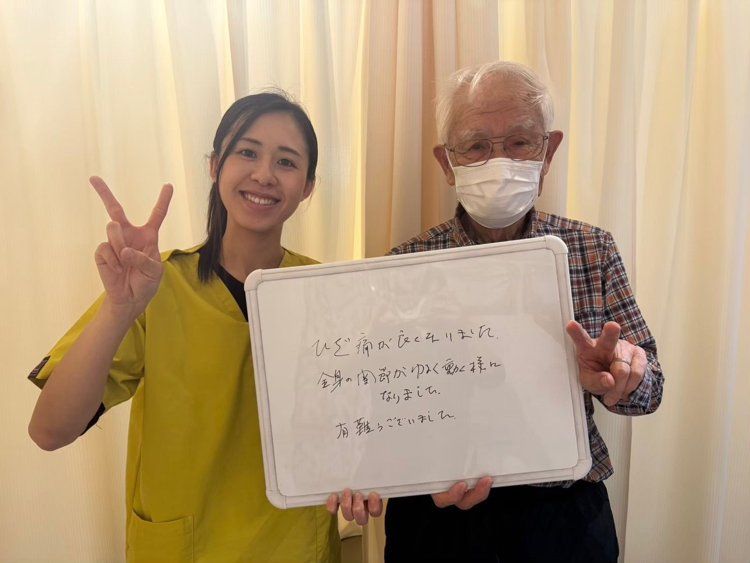 ひざ痛が良くなりました。
全身の関節がゆるく動く様に
なりました。
有難うございました。